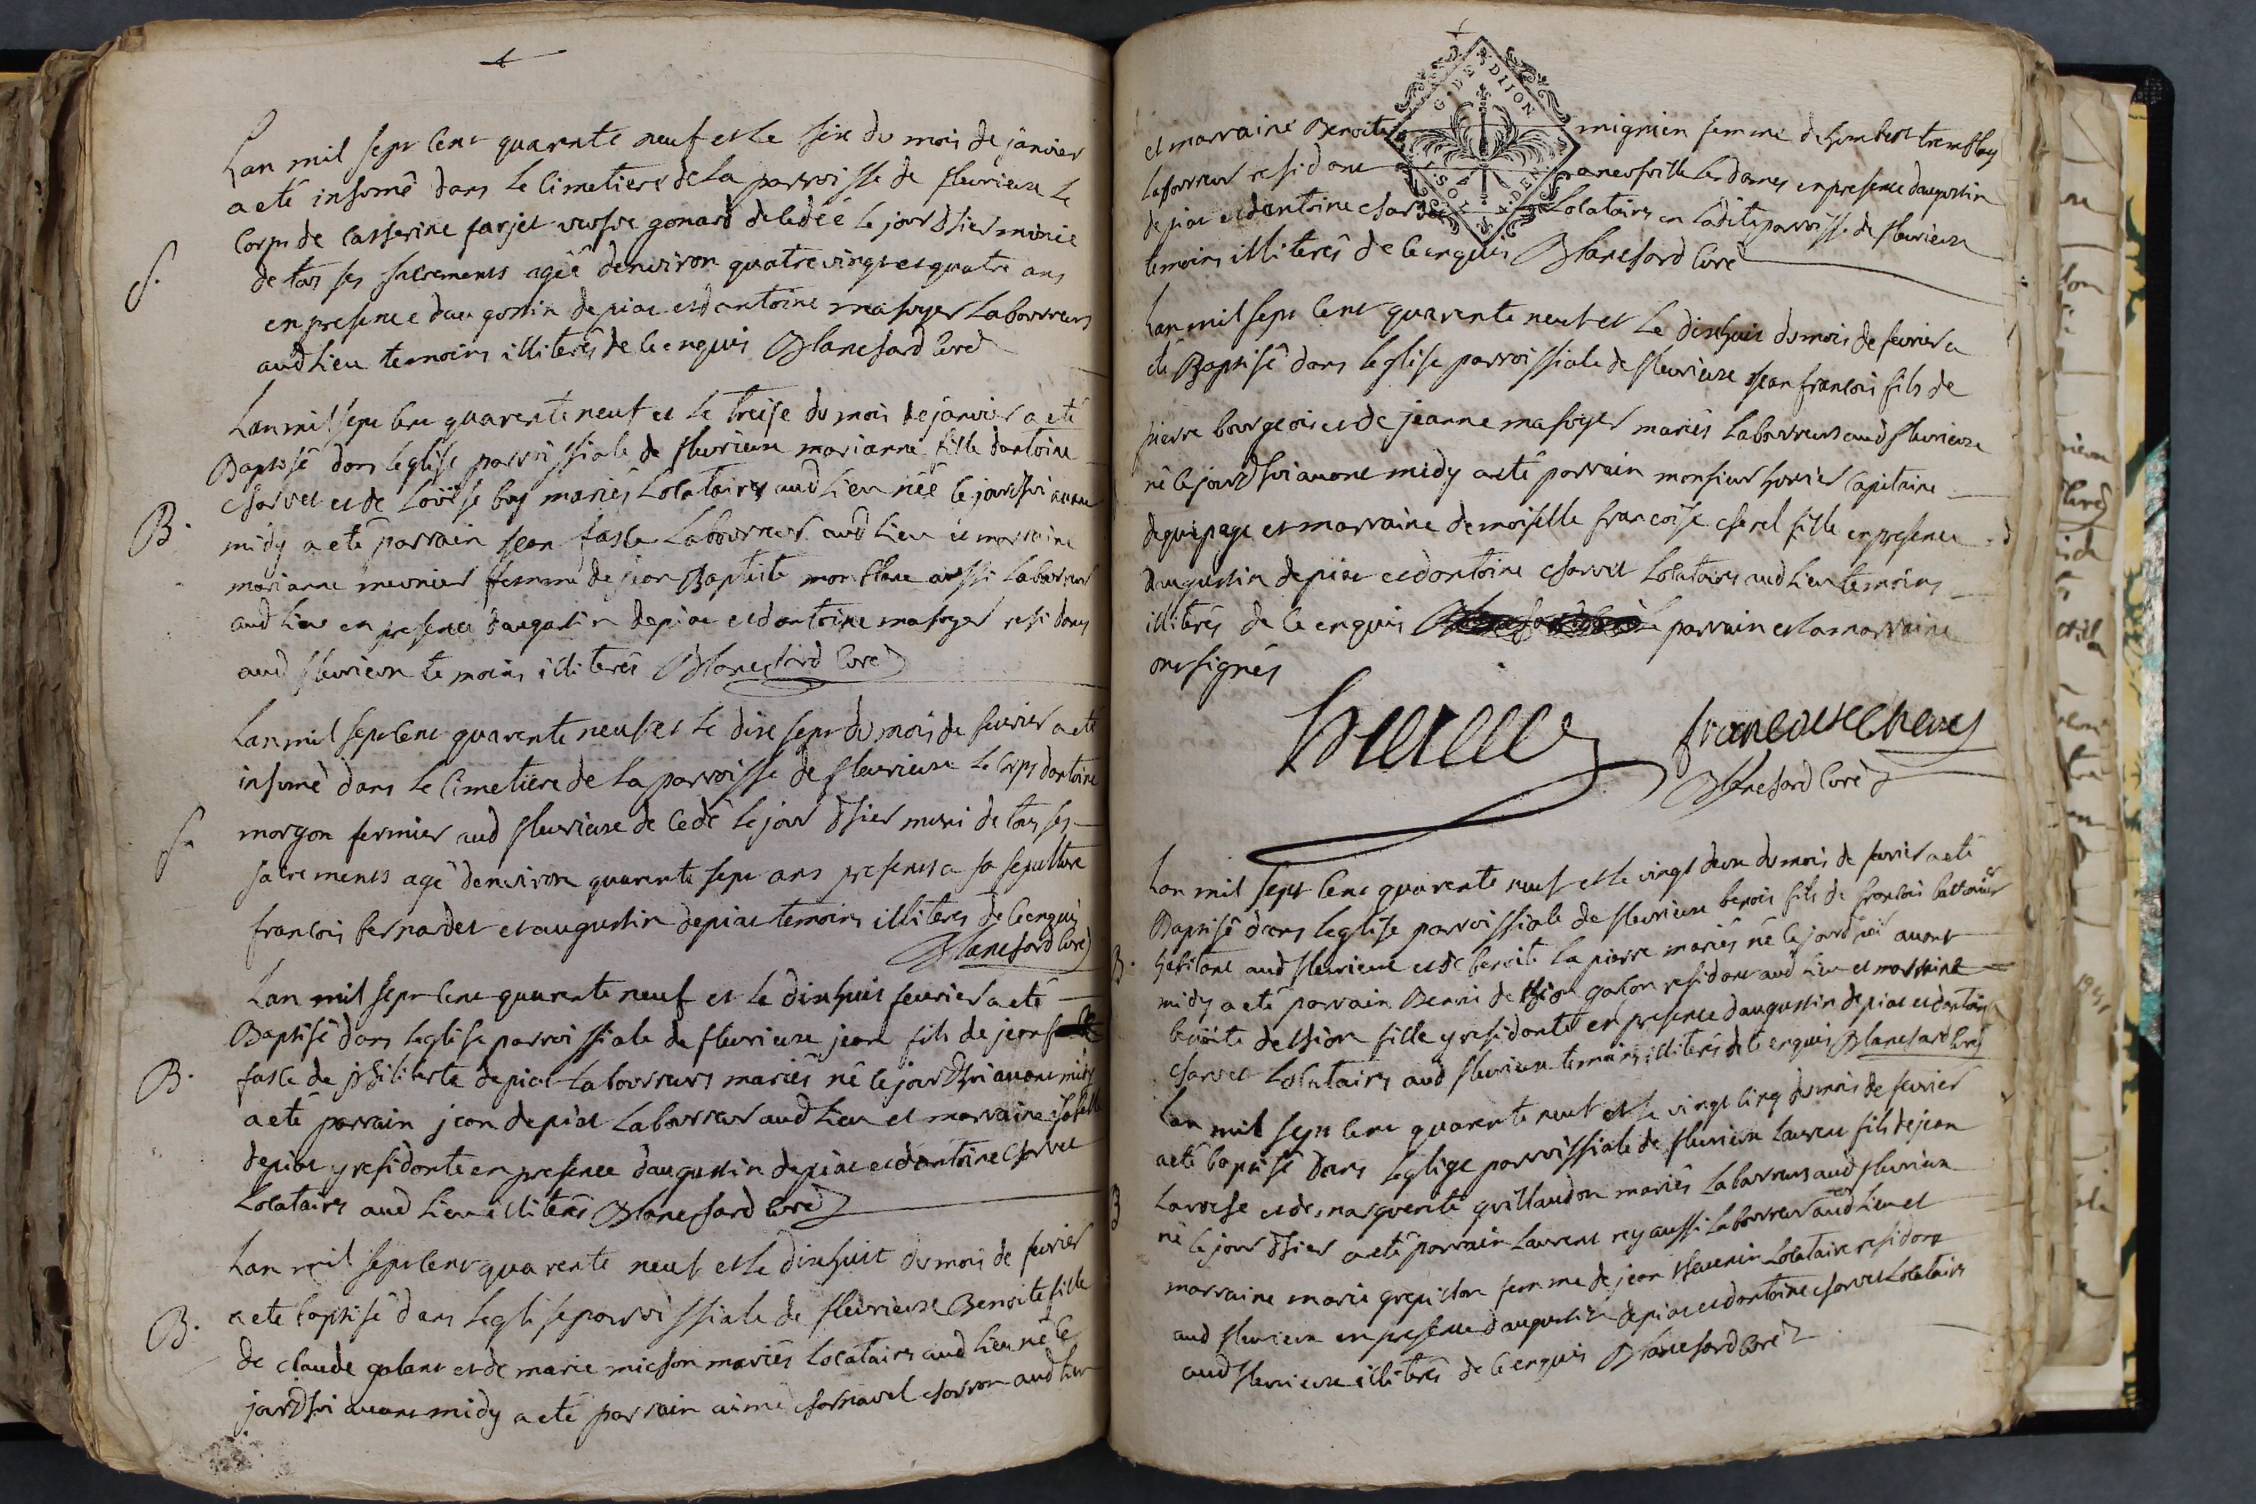 Lan mil sept cent quarente neuf et le six du mois de janvier
a eté inhumé dans le cimetiere de la parroisse de fleurieux le
corps de catherine farjet veufve gonard decedée le jour d'hier munie
de tous ses sacrements agée denviron quatre vingt et quatre ans
en presence daugostin depiat et dantoine mathyer laboureurs
aud lieu temoins illiterés de ce enquis Blanchard curé
S.
Lan mil sept cent quarente neuf et le treise du mois de janvier a eté
Baptisé dans leglise parroissiale de fleurieux marianne fille dantoine
charvet et de Loüise buy mariés Locataires aud lieu néé le jourdhui avant
B.
midy a eté parrain jean fasle Laboureur aud lieu et marraine
marianne meunier femme de jean Baptiste montblanc aussi laboureur
aud lieu en presence daugustin depiat et dantoine mathyer residans
aud fleurieux temoins illiterés Blanchard curé
Lan mil sept cent quarente neuf et le dix sept du mois de fevrier a eté
inhumé dans le cimetiere de la parroisse de fleurieux le corps dantoine
morgon fermier aud fleurieux decedé le jour d'hier muni de tous ses
S.
sacrements agé denviron quarente sept ans presents a sa sepulture
francois bernardet et augustin depiat temoins illiteres de ce enquis
Blanchard curé
Lan mil sept cent quarente neuf et le dixhuit fevrier a eté
Baptisé dans leglise parroissiale de fleurieux jean fils de jean
B.
fasle de philiberte depiat laboureurs mariés né le jourdhui avant midy
a eté parrain jean depiat laboureur aud lieu et marraine isabelle
depiat y residente en presence daugustin depiat et dantoine charvet
Locataires aud lieu illiterés Blanchard curé
Lan mil sept cent quarente neuf et le dixhuit du mois de fevrier
B.
a eté baptisé dans leglise parroissiale de fleurieux Benoite fille
de claude galant et de marie michon mariés locataires aud lieu né le
jourdhui avant midy a eté parrain aimé charnavel charron aud lieu
G. DE DIJON
SOL. DEN.
et marraine Benoite mignien femme de humbert tremblay
laboureur residant a neufville les dames en presence daugustin
depiat et dantoine charvet Locataires en ladite parroisse de fleurieux
temoins illiterés de ce enquis Blanchard curé
Lan mil sept cent quarente neuf et le dixhuit du mois de fevrier a
eté Baptisé dans leglise parroissiale de fleurieux jean francois fils de
pierre bourgeois et de jeanne mathyer mariés laboureurs aud fleurieux
né le jourdhui avant midy a eté parrain monsieur capitaine
dequipage et marraine demoiselle francoise fille en presence
daugustin depiat et dantoine charvet locataires aud lieu temoins
illiterés de ce enquis le parrain et la marraine
ont signés
francoise
Blanchard curé
Lan mil sept cent quarente neuf et le vingt deux du mois de fevrier a eté
Baptisé dans leglise parroissiale de fleurieux benoit fils de francois
B.
habitant aud fleurieux et de benoite la pierre mariés né le jourdhui avant
midy a eté parrain Benoi de thion garcon residant aud lieu et marraine
benoite de thion fille y residente en presence daugustin depiat et dantoine
charvet Locataires aud fleurieux temoins illiterés de ce enquis Blanchard curé
Lan mil sept cent quarente neuf et le vingt cinq du mois de fevrier
a eté baptisé dans leglige parroissiale de fleurieux laurent fils de jean
B
laroche et de marguerite guillaudon mariés laboureurs aud fleurieux
né le jour d'hier a eté parrain laurent rey aussi laboureur aud lieu et
marraine marie femme de jean thevenin locataire residant
aud fleurieux en presence daugustin depiat et dantoine charvet locataires
aud fleurieux illiterés de ce enquis Blanchard curé